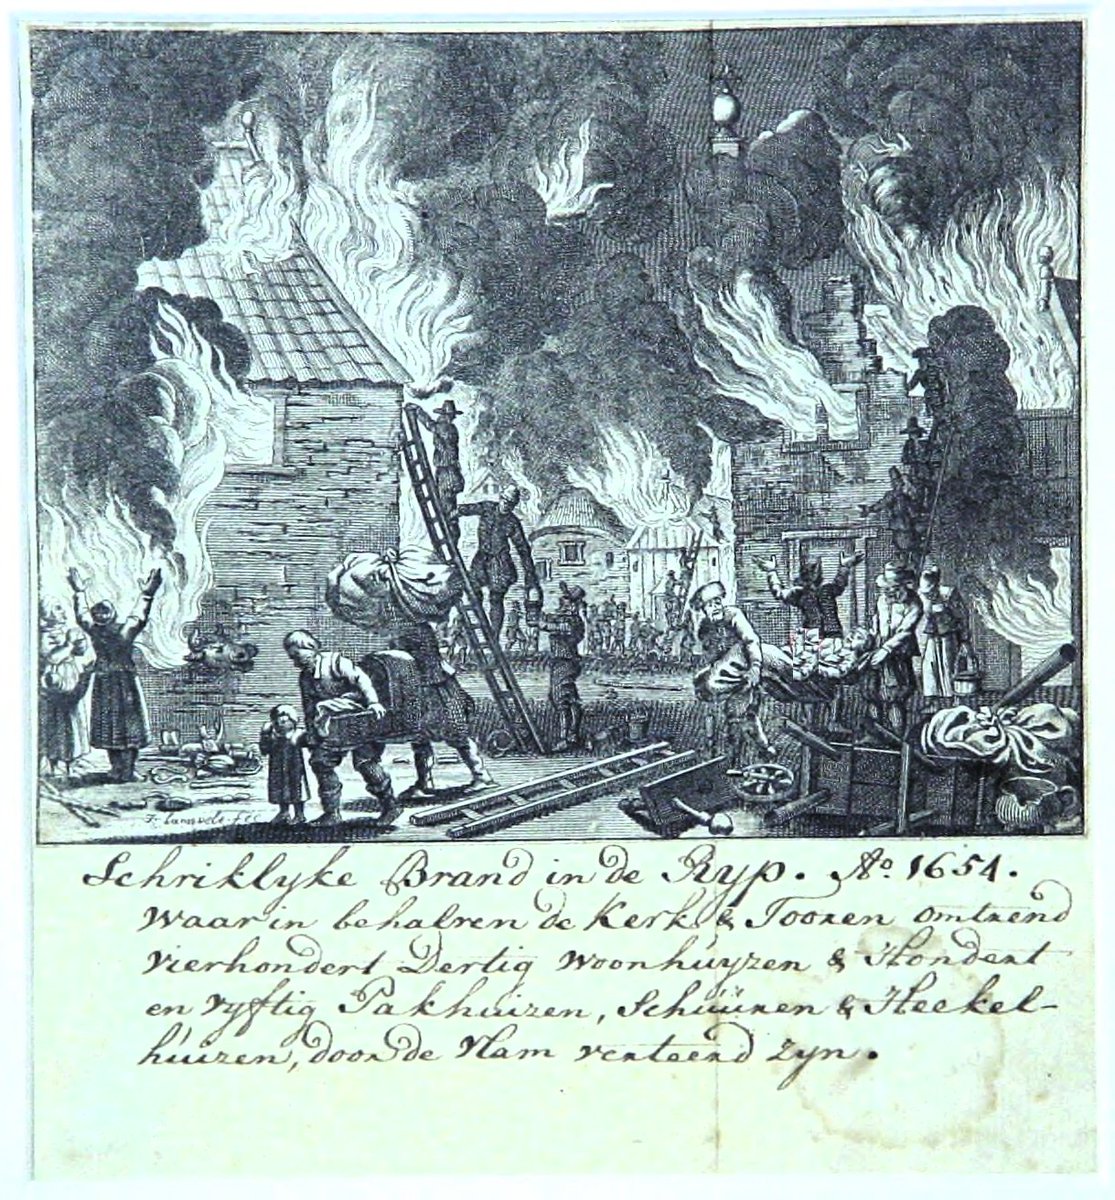 F. Lamsvelt. fec
Schriklyke Brand in de Ryp. Ao. 1654.
waar in behalven de Kerk & Tooren omtrend
vierhondert Dertig woonhuyzen & Hondert
en vyftig Pakhuizen, Schuuren & Heekel-
huizen, door de Vlam verteerd zyn.